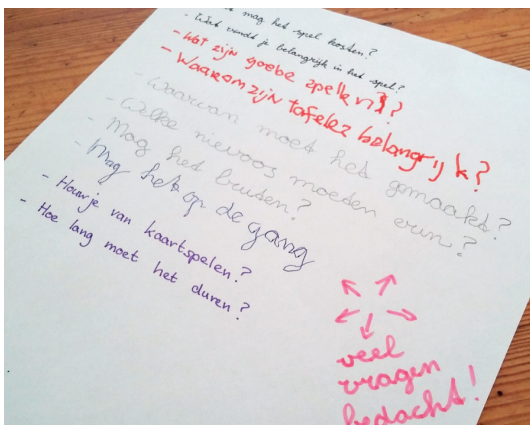 mag het spel kosten?
- Wat vindt je belangrijk in het spel?
- Wat zijn goebe spelk
- Waarom zijn tafelez belangrijk?
- Waarvan moet het gemaakt?
- Welke nievoos moeten erin?
- Mag het buiten?
- Mag het op de gang
- Houw je van kaartspelen?
- Hoe lang moet het duren?
veel
vragen
bedacht!